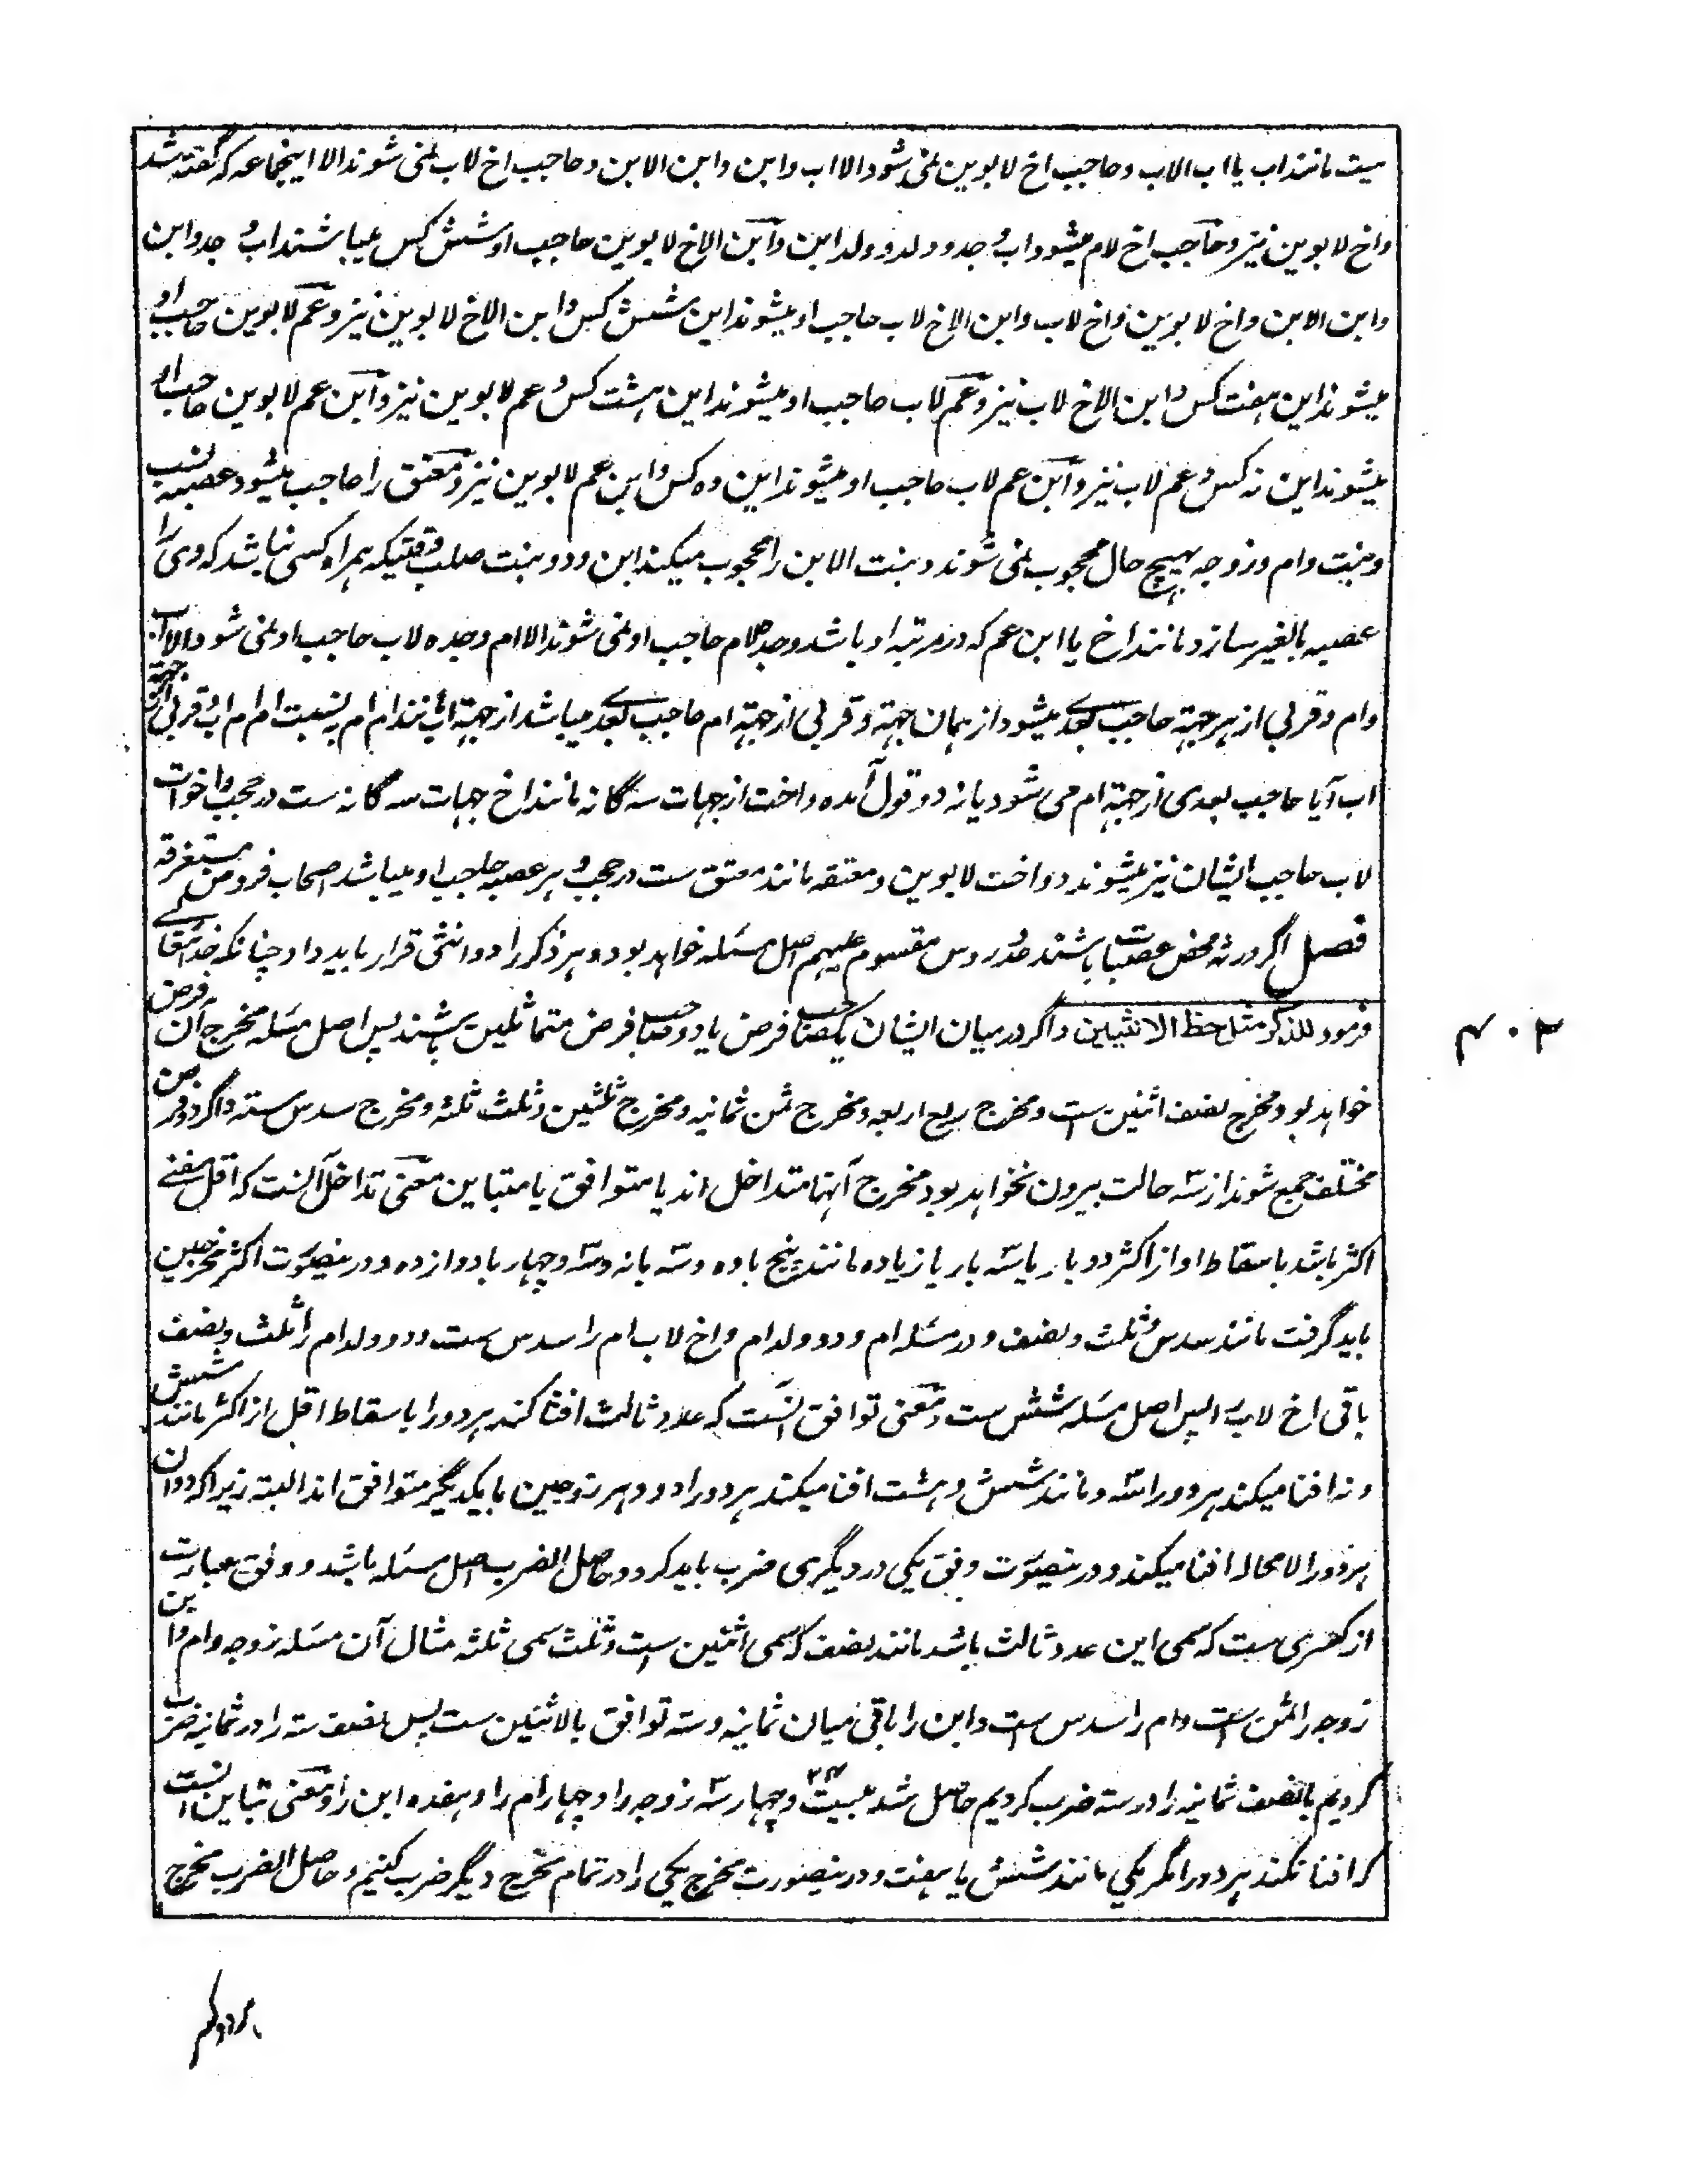 میت مانند اب یا اب الاب و حاجب اخ لابوین نمی شود الا اب و ابن و ابن الابن و حاجب اخ لاب نمی شوند الا اینجماعه که گفته شد
و اخ لابوین نیز و حاجب اخ لام میشود اب و جد و ولد و ولد ابن و ابن الاخ لابوین حاجب او شش کس میباشند اب و جد و ابن
و ابن الابن و اخ لابوین و اخ لاب و ابن الاخ لاب حاجب او میشوند این شش کس و ابن الاخ لابوین نیز و عم لابوین حاجب او
میشوند این هفت کس و ابن الاخ لاب نیز و عم لاب حاجب او میشوند این هشت کس و عم لابوین نیز و ابن عم لابوین حاجب او
میشوند این نه کس و عم لاب نیز و ابن عم لاب حاجب او میشوند این ده کس و ابن عم لابوین نیز و معتق را حاجب میشود عصبه نسب
و بنت و ام و زوجه بهیچ حال محجوب نمی شوند و بنت الابن را محجوب میکند ابن و دو بنت صلب وقتیکه همراه کسی نباشد که وی را
عصبه بالغیر سازد مانند اخ یا ابن عم که در مرتبه او باشد و جده لام حاجب او نمی شوند الا ام و جده لاب حاجب او نمی شود الا اب
و ام و قربی از هر جهة حاجب بعدی میشود از همان جهة و قربی از جهة ام حاجب بعدی میباشد از جهة اب مانند ام ام به نسبت ام ام اب و قربی از جهة
اب آیا حاجب بعدی از جهة ام می شود یا نه دو قول آمده و اخت از جهات سه گانه مانند اخ جهات سه گانه ست در حجب و اخوات
لاب حاجب ایشان نیز میشوند دو اخت لابوین و معتقه مانند معتق ست در حجب و هر عصبه حاجب او میباشد اصحاب فروض مستغرقه
فصل اگر ورثه محض عصبات باشند عدد روس مقسوم علیهم اصل مسئله خواهد بود و هر ذکر را دو انثی قرار باید داد چنانکه خدایتعالی
فرمود للذکر مثل حظ الانثیین و اگر درمیان ایشان یک صاحب فرض یا دو صاحب فرض متماثلین باشند پس اصل مسئله مخرج آن فرض
خواهد بود و مخرج نصف اثنین ست و مخرج ربع اربعه و مخرج ثمن ثمانیه و مخرج ثلثین و ثلث ثلثه و مخرج سدس سته و اگر دو فرض
مختلف جمع شوند از سه حالت بیرون نخواهد بود مخرج آنها متداخل اند یا متوافق یا متباین معنی تداخل آنست که اقل مفنی
اکثر باشد باسقاط او از اکثر دو بار یا سه بار یا زیاده مانند پنج با ده و سه با نه و سه و چهار با دوازده و درینصورت اکثر مخرجین
باید گرفت مانند سدس و ثلث و نصف و در مسئله ام و دو ولد ام و اخ لاب ام را سدس ست و دو ولد ام را ثلث و نصف
باقی اخ لاب را پس اصل مسئله شش ست و معنی توافق آنست که عدد ثالث افنا کند هر دو را باسقاط اقل از اکثر مانند شش
و نه افنا میکند هر دو را سه و مانند شش و هشت افنا میکند هر دو را دو و هر زوجین با یکدیگر متوافق اند البته زیرا که دو آن
هر دو را لامحاله افنا میکند و درینصورت وفق یکی در دیگری ضرب باید کرد و حاصل الضرب اصل مسئله باشد و وفق عبارت
از کسری ست که سمی این عدد ثالث باشد مانند نصف که سمی اثنین ست و ثلث سمی ثلثه مثال آن مسئله زوجه و ام و ابن
زوجه را ثمن ست و ام را سدس ست و ابن را باقی میان ثمانیه و سته توافق بالاثنین ست پس نصف سته را در ثمانیه ضرب
کردیم یا نصف ثمانیه را در سته ضرب کردیم حاصل شد بیست و چهار ۲۴ سه زوجه را و چهار ام را و هفده ابن را و معنی تباین آنست
که افنا نکند هر دو را مگر یکی مانند شش یا هفت و درینصورت مخرج یکی را در تمام مخرج دیگر ضرب کنیم و حاصل الضرب مخرج
۴۰۲